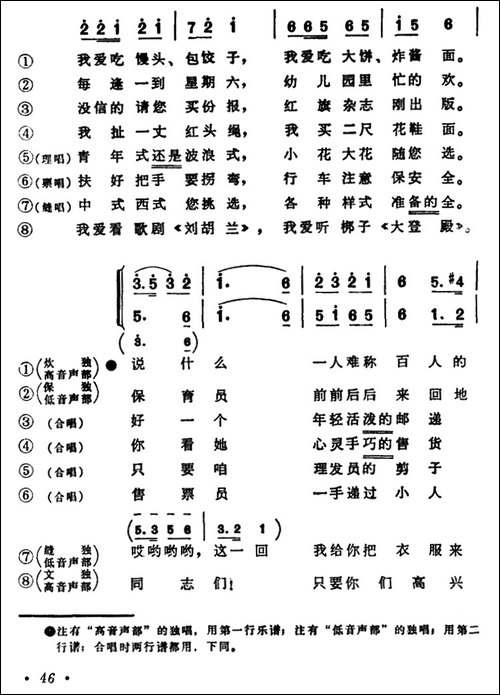 2 2 1 2 1 | 7 2 1 | 6 6 5 6 5 | 1 5 6
① 我爱吃 馒头、包饺子, 我爱吃 大饼、炸酱 面。
② 每 逢 一到 星期六, 幼 儿 园里 忙的 欢。
③ 没信的 请您 买份报, 红 旗 杂志 刚出 版。
④ 我 扯 一丈 红头绳, 我 买 二尺 花鞋 面。
⑤(理唱) 青 年式 还是 波浪式, 小 花 大花 随您 选。
⑥(票唱) 扶 好 把手 要拐弯, 行 车 注意 保安 全。
⑦(缝唱) 中 式 西式 您挑选, 各 种 样式 准备的 全。
⑧ 我爱看 歌剧《刘胡兰》, 我爱听 梆子《大登 殿》。
3. 5 3 2 | 1. 6 | 2 3 2 1 | 6 5. #4
5. 6 | 1. 6 | 5 1 6 5 | 6 1. 2
(3. 6)
①(炊 独 高音声部) ● 说 什 么 一人难称 百 人 的
②(保 独 低音声部) 保 育 员 前前后后 来 回 地
③ (合唱) 好 一 个 年轻活泼的 邮 递
④ (合唱) 你 看 她 心灵手巧的 售 货
⑤ (合唱) 只 要 咱 理发员的 剪 子
⑥ (合唱) 售 票 员 一手递过 小 人
(5. 3 5 6 | 3. 2 1 )
⑦(缝 独 低音声部) 哎哟哟哟, 这一回 我给你把 衣 服 来
⑧(文 独 高音声部) 同 志 们! 只要你们 高 兴
●注有“高音声部”的独唱, 用第一行乐谱; 注有“低音声部”的独唱; 用第二
行谱; 合唱时两行谱都用. 下同。
• 46 •